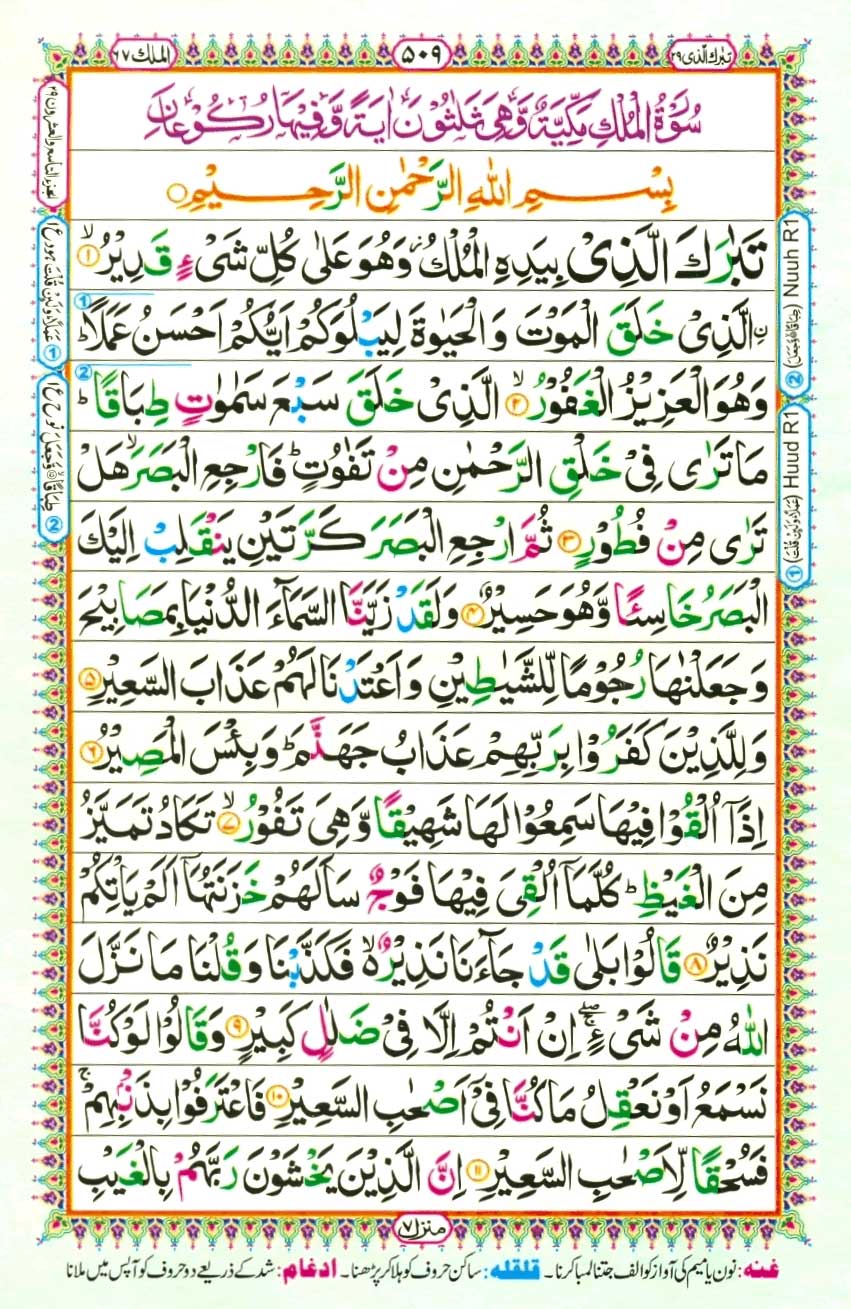 تبٰرك الّذى ٢٩
۵۰۹
الملك ٦٧
سُوْرَةُ الْمُلْكِ مَكِّيَّةٌ وَّهِىَ ثَلٰثُوْنَ اٰيَةً وَّفِيْهَا رُكُوْعَانِ
بِسْمِ اللّٰهِ الرَّحْمٰنِ الرَّحِيْمِ
تَبٰرَكَ الَّذِىْ بِيَدِهِ الْمُلْكُ ؗ وَهُوَ عَلٰى كُلِّ شَىْءٍ قَدِيْرُ ۙ﴿۱﴾
ۨالَّذِىْ خَلَقَ الْمَوْتَ وَالْحَيٰوةَ لِيَبْلُوَكُمْ اَيُّكُمْ اَحْسَنُ عَمَلًا ؕ
وَهُوَ الْعَزِيْزُ الْغَفُوْرُ ۙ﴿۲﴾ الَّذِىْ خَلَقَ سَبْعَ سَمٰوٰتٍ طِبَاقًا ؕ
مَا تَرٰى فِىْ خَلْقِ الرَّحْمٰنِ مِنْ تَفٰوُتٍ ؕ فَارْجِعِ الْبَصَرَ ۙ هَلْ
تَرٰى مِنْ فُطُوْرٍ ﴿۳﴾ ثُمَّ ارْجِعِ الْبَصَرَ كَرَّتَيْنِ يَنْقَلِبْ اِلَيْكَ
الْبَصَرُ خَاسِئًا وَّهُوَ حَسِيْرٌ ﴿۴﴾ وَلَقَدْ زَيَّنَّا السَّمَآءَ الدُّنْيَا بِمَصَابِيْحَ
وَجَعَلْنٰهَا رُجُوْمًا لِّلشَّيٰطِيْنِ وَاَعْتَدْنَا لَهُمْ عَذَابَ السَّعِيْرِ ﴿۵﴾
وَلِلَّذِيْنَ كَفَرُوْا بِرَبِّهِمْ عَذَابُ جَهَنَّمَ ؕ وَبِئْسَ الْمَصِيْرُ ﴿۶﴾
اِذَاۤ اُلْقُوْا فِيْهَا سَمِعُوْا لَهَا شَهِيْقًا وَّهِىَ تَفُوْرُ ۙ﴿۷﴾ تَكَادُ تَمَيَّزُ
مِنَ الْغَيْظِ ؕ كُلَّمَاۤ اُلْقِىَ فِيْهَا فَوْجٌ سَاَلَهُمْ خَزَنَتُهَاۤ اَلَمْ يَاْتِكُمْ
نَذِيْرٌ ﴿۸﴾ قَالُوْا بَلٰى قَدْ جَآءَنَا نَذِيْرٌ ۙ۬ فَكَذَّبْنَا وَقُلْنَا مَا نَزَّلَ
اللّٰهُ مِنْ شَىْءٍ ۖۚ اِنْ اَنْتُمْ اِلَّا فِىْ ضَلٰلٍ كَبِيْرٍ ﴿۹﴾ وَقَالُوْا لَوْ كُنَّا
نَسْمَعُ اَوْ نَعْقِلُ مَا كُنَّا فِىْۤ اَصْحٰبِ السَّعِيْرِ ﴿۱۰﴾ فَاعْتَرَفُوْا بِذَنْۢبِهِمْ ۚ
فَسُحْقًا لِّاَصْحٰبِ السَّعِيْرِ ﴿۱۱﴾ اِنَّ الَّذِيْنَ يَخْشَوْنَ رَبَّهُمْ بِالْغَيْبِ
منزل ۷
غنه: نون یا میم کی آواز کو الف جتنا لمبا کرنا۔ قلقله: ساکن حروف کو ہلا کر پڑھنا۔ ادغام: شد کے ذریعے دو حروف کو آپس میں ملانا
Nuuh R1 ②
Huud R1 ①